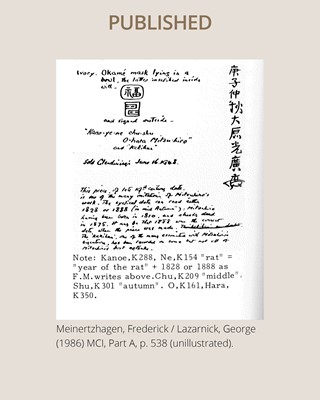 PUBLISHED
Ivory. Okame mask lying in a
bowl, the latter inscribed inside
with -
福
庚子仲秋大原光廣
and signed outside -
"Kano-ye-ne chu-shu
O-hara Mitsuhiro"
and
Sold June 16 1948.
This piece, of late 19th century date,
is one of the many imitations of Mitsuhiro's
work. The cyclical date can read either
1828 or 1888 (in mid Autumn). Mitsuhiro
having been born in 1810, and already dead
in 1875. It may be that 1888 is the
date when the piece was made.
Note: Kanoe,K288, Ne,K154 "rat" =
"year of the rat" + 1828 or 1888 as
F.M.writes above.Chu,K209 "middle".
Shu,K301 "autumn". O,K161,Hara,
K350.
Meinertzhagen, Frederick / Lazarnick, George
(1986) MCI, Part A, p. 538 (unillustrated).